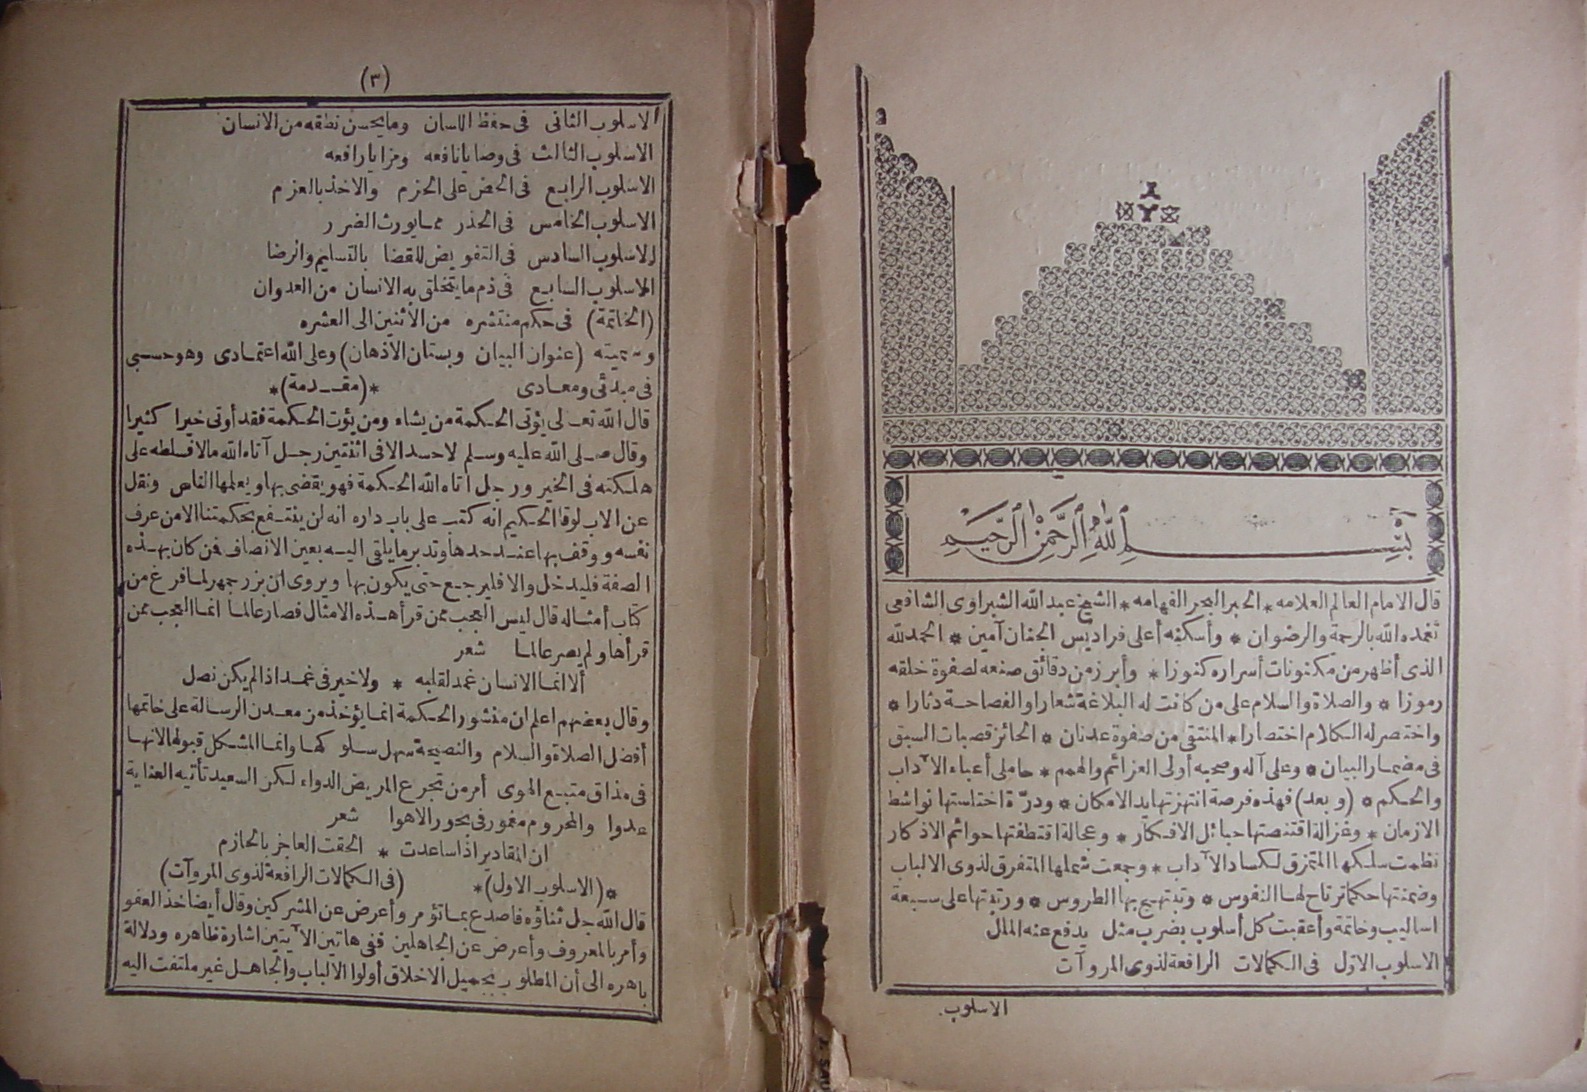 بسم الله الرحمن الرحيم
قال الامام العالم العلامه * الحبر البحر الفهامه * الشيخ عبد الله الشبراوى الشافعى
تغمده الله بالرحمة والرضوان * وأسكنه أعلى فراديس الجنان آمين * الحمد لله
الذى أظهر من مكنونات أسراره كنوزا * وأبرز من دقائق صنعه لصفوة خلقه
رموزا * والصلاة والسلام على من كانت له البلاغة شعارا والفصاحة دثارا *
واختصر له الكلام اختصارا * المنتقى من صفوة عدنان * الحائز قصبات السبق
فى مضمار البيان * وعلى آله وصحبه أولى العزائم والهمم * حاملى أعباء الآداب
والحكم * (وبعد) فهذه فرصة انتهزتها يد الامكان * ودرّة اختلستها نواشط
الازمان * وغزالة اقتنصتها حبائل الافكار * وعجالة اقتطفتها حوائم الاذكار
نظمت سلكها المتمزق لكساد الآداب * وجمعت شملها المتفرق لذوى الالباب
وضمنتها حكما ترتاح لها النفوس * وتبتهج بها الطروس * ورتبتها على سبعة
اساليب وخاتمة وأعقبت كل أسلوب بضرب مثل يدفع عنه الملل
الاسلوب الاول فى الكمالات الرافعة لذوى المروآت
الاسلوب
(٣)
الاسلوب الثانى فى حفظ اللسان وما يحسن نطقه من الانسان
الاسلوب الثالث فى وصايا نافعه ومزايا رافعه
الاسلوب الرابع فى الحض على الحزم والاخذ بالعزم
الاسلوب الخامس فى الحذر مما يورث الضرر
الاسلوب السادس فى التفويض للقضا بالتسليم والرضا
الاسلوب السابع فى ذم ما يتخلق به الانسان من العدوان
(الخاتمة) فى حكم منتشره من الأثنين الى العشره
وسميته (عنوان البيان وبستان الأذهان) وعلى الله اعتمادى وهو حسبى
فى مبدئى ومعادى *(مقدمة)*
قال الله تعالى يؤتى الحكمة من يشاء ومن يؤت الحكمة فقد أوتى خيرا كثيرا
وقال صلى الله عليه وسلم لا حسد الا فى اثنتين رجل آتاه الله مالا فسلطه على
هلكته فى الخير ورجل اتاه الله الحكمة فهو يقضى بها ويعلمها الناس ونقل
عن الاب لوقا الحكيم انه كتب على باب داره انه لن ينتفع بحكمتنا الا من عرف
نفسه ووقف بها عند حدها وتدبر ما يلقى اليه بعين الانصاف فمن كان بهذه
الصفة فليدخل والا فليرجع حتى يكون بها ويروى ان بزرجمهر لما فرغ من
كتاب أمثاله قال ليس العجب ممن قرأ هذه الامثال فصار عالما انما العجب ممن
قرأها ولم يصر عالما شعر
ألا انما الانسان غمد لقلبه * ولا خير فى غمد اذا لم يكن نصل
وقال بعضهم اعلم ان منشور الحكمة انما يؤخذ من معدن الرسالة على خاتمها
أفضل الصلاة والسلام والنصيحة سهل سلوكها وانما المشكل قبولها لانها
فى مذاق متبع الهوى أمر من تجرع المريض الدواء لكن السعيد تأتيه العناية
عدوا والمحروم مغمور فى بحور الاهوا شعر
ان المقادير اذا ساعدت * الحقت العاجز بالحازم
*(الاسلوب الاول)* (فى الكمالات الرافعة لذوى المروآت)
قال الله جل ثناؤه فاصدع بما تؤمر وأعرض عن المشركين وقال أيضا خذ العفو
وأمر بالمعروف وأعرض عن الجاهلين ففى هاتين الآيتين اشارة ظاهره ودلالة
باهره الى أن المطلوب بجميل الاخلاق أولوا الالباب والجاهل غير ملتفت اليه